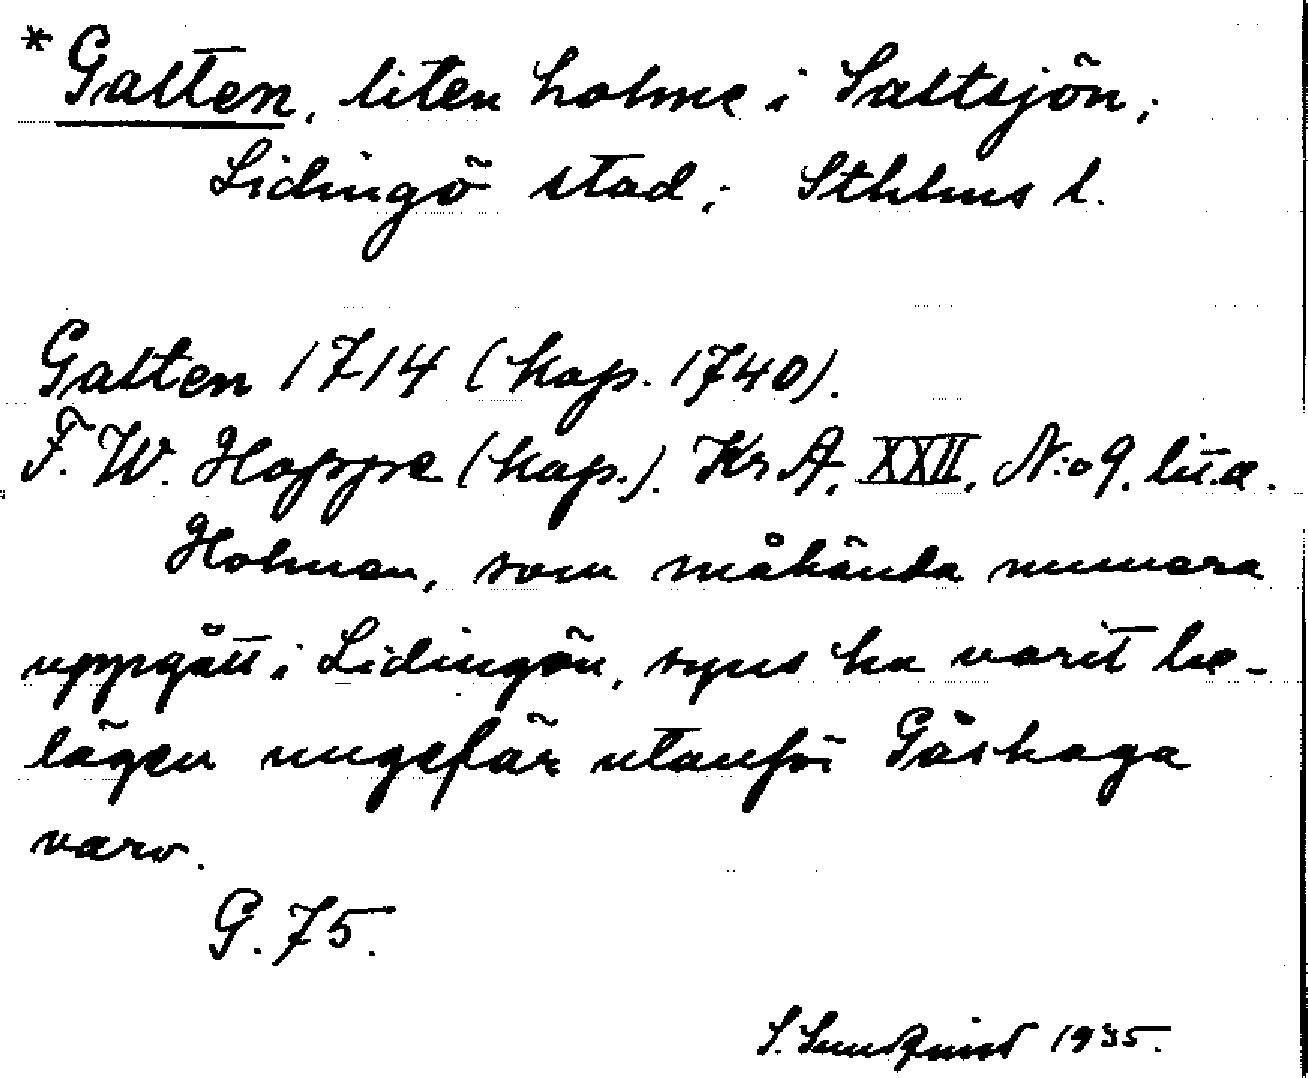 *Galten, liten holme i Saltsjön;
Lidingö stad; Sthlms l.
Galten 1714 (kop. 1740).
F. W. Hoppe (kop.). Kr A, XXII, N:o 9. lit.a.
Holmen, som måhända numera
uppgått i Lidingön, syns ha varit be-
lägen ungefär utanför Gåshaga
varv.
G. 75.
S. Sundquist 1935.